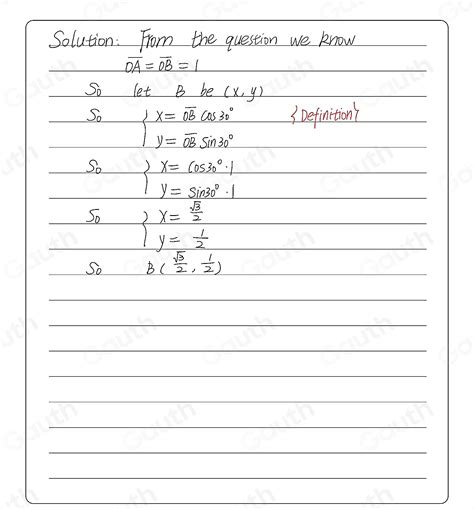 Solution: From the question we know
OA̅ = OB̅ = 1
So let B be (x, y)
So { x = OB̅ cos 30° {Definition}
y = OB̅ sin 30°
So { x = cos30° · 1
y = sin30° · 1
So { x = √3/2
y = 1/2
So B (√3/2, 1/2)
Gauth